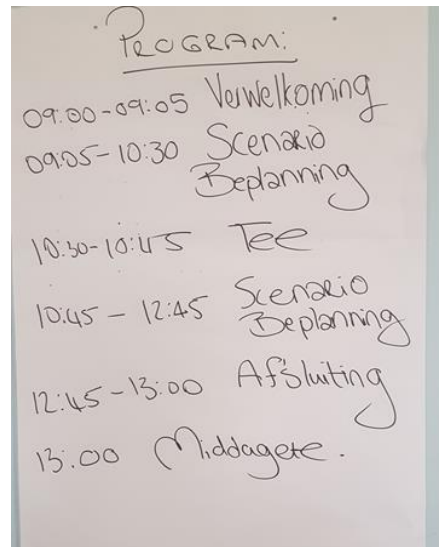 PROGRAM:
09:00-09:05 Verwelkoming
09:05-10:30 Scenario
Beplanning
10:30-10:45 Tee
10:45 - 12:45 Scenario
Beplanning
12:45-13:00 Afsluiting
13:00 Middagete.